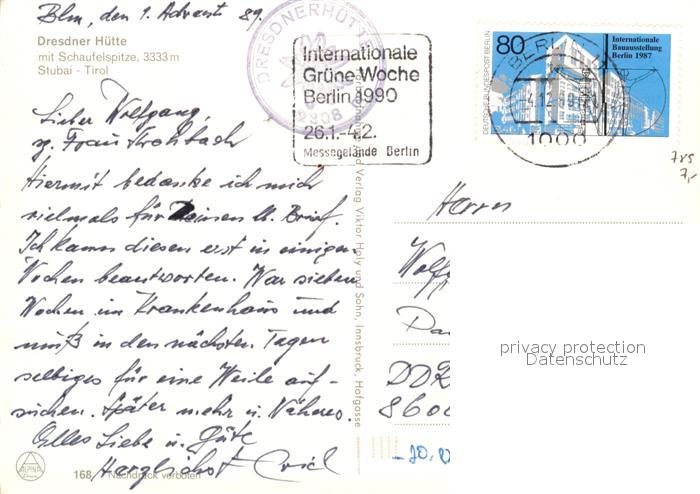 Bln, den 1. Advent 89.
Dresdner Hütte
mit Schaufelspitze, 3333 m
Stubai - Tirol
Lieber Wolfgang,
Hiermit bedanke ich mich
vielmals für Deinen lb. Brief.
Ich kann diesen erst in einigen
Wochen beantworten. War sieben
Wochen im Krankenhaus und
muß in den nächsten Tagen
selbiges für eine Weile auf-
suchen. Später mehr u. Näheres.
Alles Liebe u. Gute
Herzlichst
ALPINA
168 Nachdruck verboten
DRESDNERHÜTTE
2308
Internationale
Grüne Woche
Berlin 1990
26.1.-4.2.
Messegelände Berlin
80
DEUTSCHE BUNDESPOST BERLIN
Internationale
Bauausstellung
Berlin 1987
BERLIN
1000
785
7,-
Verlag Viktor Holy und Sohn, Innsbruck, Hofgasse
Herrn
DDR
privacy protection
Datenschutz